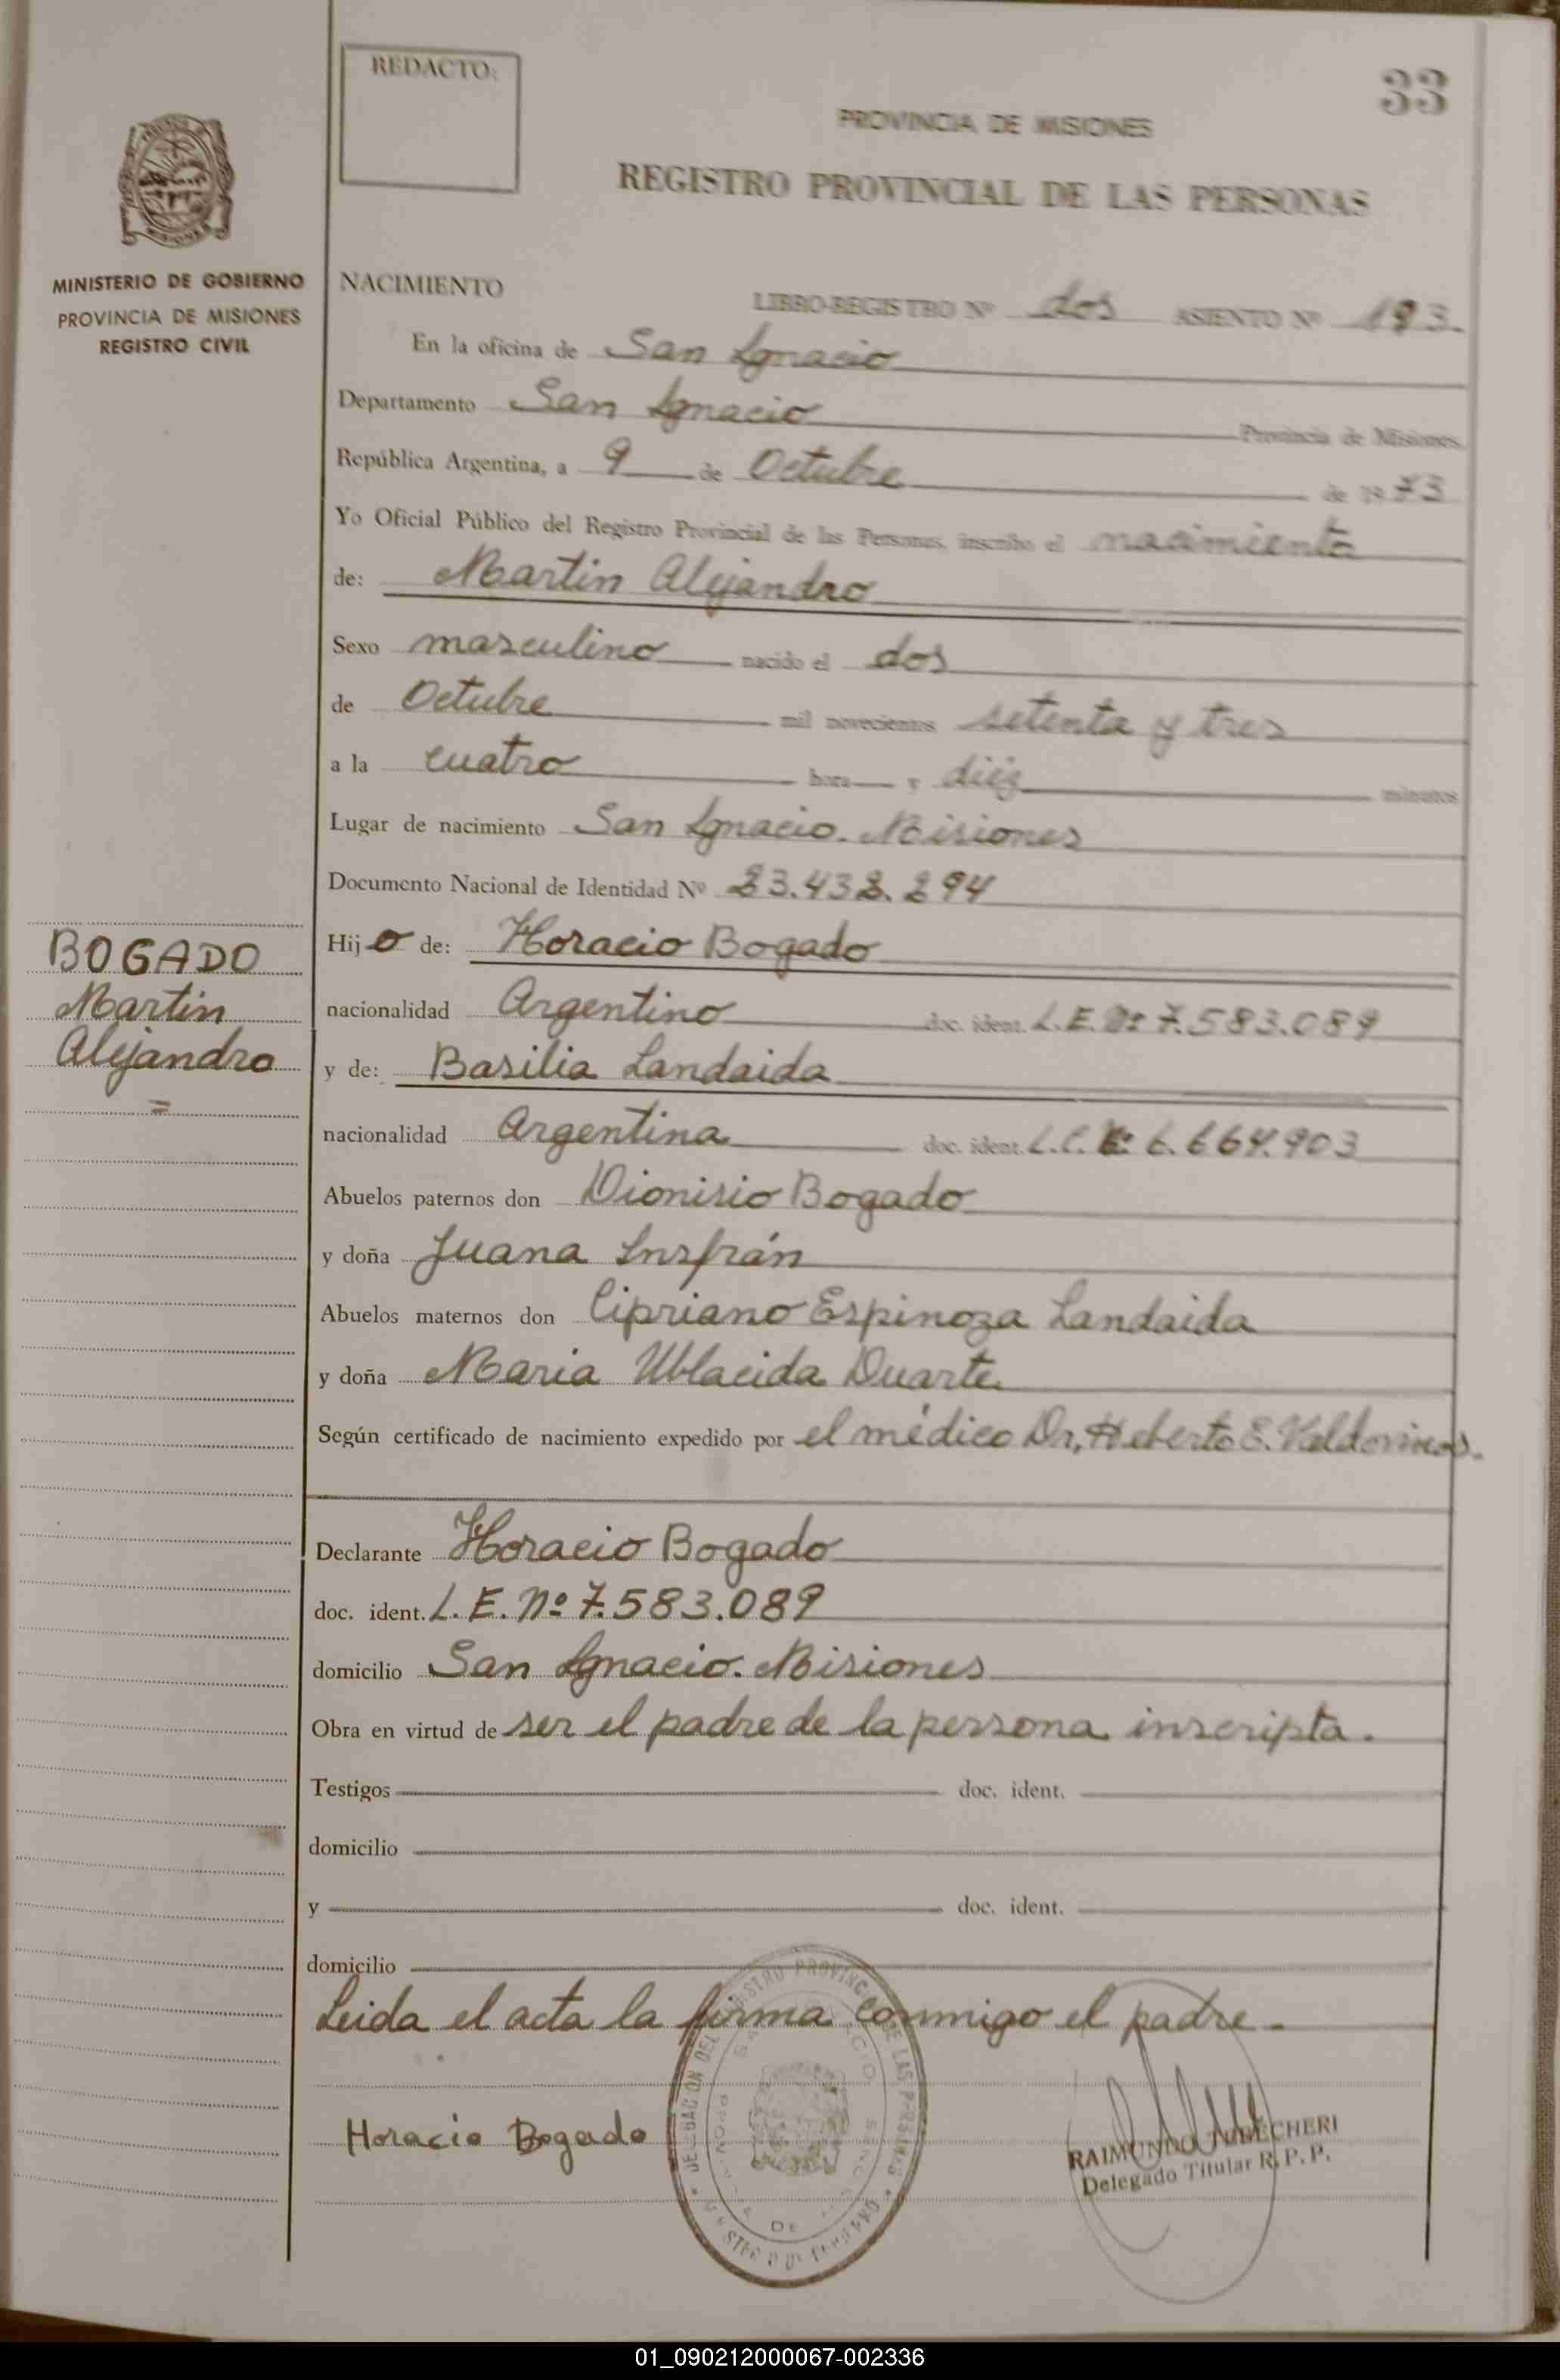 REDACTO:
33
PROVINCIA DE MISIONES
REGISTRO PROVINCIAL DE LAS PERSONAS
MINISTERIO DE GOBIERNO
PROVINCIA DE MISIONES
REGISTRO CIVIL
NACIMIENTO
LIBRO-REGISTRO Nº dos ASIENTO Nº 193.
En la oficina de San Ignacio
Departamento San Ignacio Provincia de Misiones,
República Argentina, a 9 de Octubre de 1973
Yo Oficial Público del Registro Provincial de las Personas, inscribo el nacimiento
de: Martin Alejandro
Sexo masculino nacido el dos
de Octubre mil novecientos setenta y tres
a la cuatro hora y diéz minutos
Lugar de nacimiento San Ignacio. Misiones
Documento Nacional de Identidad Nº 23.432.294
BOGADO
Martin
Alejandro
=
Hijo de: Horacio Bogado
nacionalidad Argentino doc. ident. L.E. Nº 7.583.089
y de: Basilia Landaida
nacionalidad Argentina doc. ident. L.C. Nº 6.664.903
Abuelos paternos don Dionisio Bogado
y doña Juana Insfrán
Abuelos maternos don Cipriano Espinoza Landaida
y doña Maria Ublacida Duarte
Según certificado de nacimiento expedido por el médico Dr, Heberto E. Valdovinos.
Declarante Horacio Bogado
doc. ident. L.E. Nº 7.583.089
domicilio San Ignacio. Misiones
Obra en virtud de ser el padre de la persona inscripta.
Testigos doc. ident.
domicilio
y doc. ident.
domicilio
Leida el acta la firma conmigo el padre.
Horacio Bogado
DELEGACION DEL REGISTRO PROVINCIAL DE LAS PERSONAS
RAIMUNDO
Delegado Titular R. P. P.
01_090212000067-002336